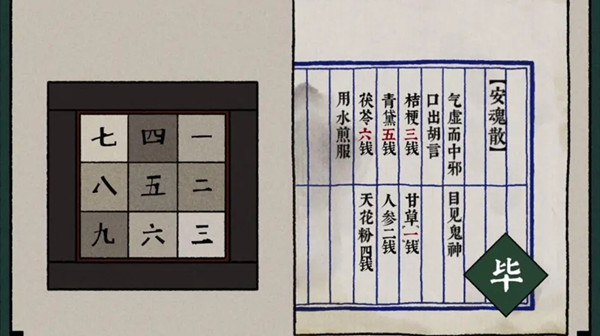 七 四 一
八 五 二
九 六 三
【安魂散】
气虚而中邪 目见鬼神
口出胡言
桔梗三钱 甘草一钱
青黛五钱 人参二钱
茯苓六钱 天花粉四钱
用水煎服
毕